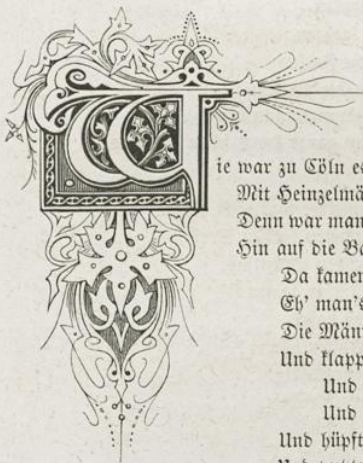 Wie war zu Cöln es
Mit Heinzelmä
Denn war man
Hin auf die Ba
Da kamen
Eh' man's
Die Männ
Und klapp
Und
Und
Und hüpft